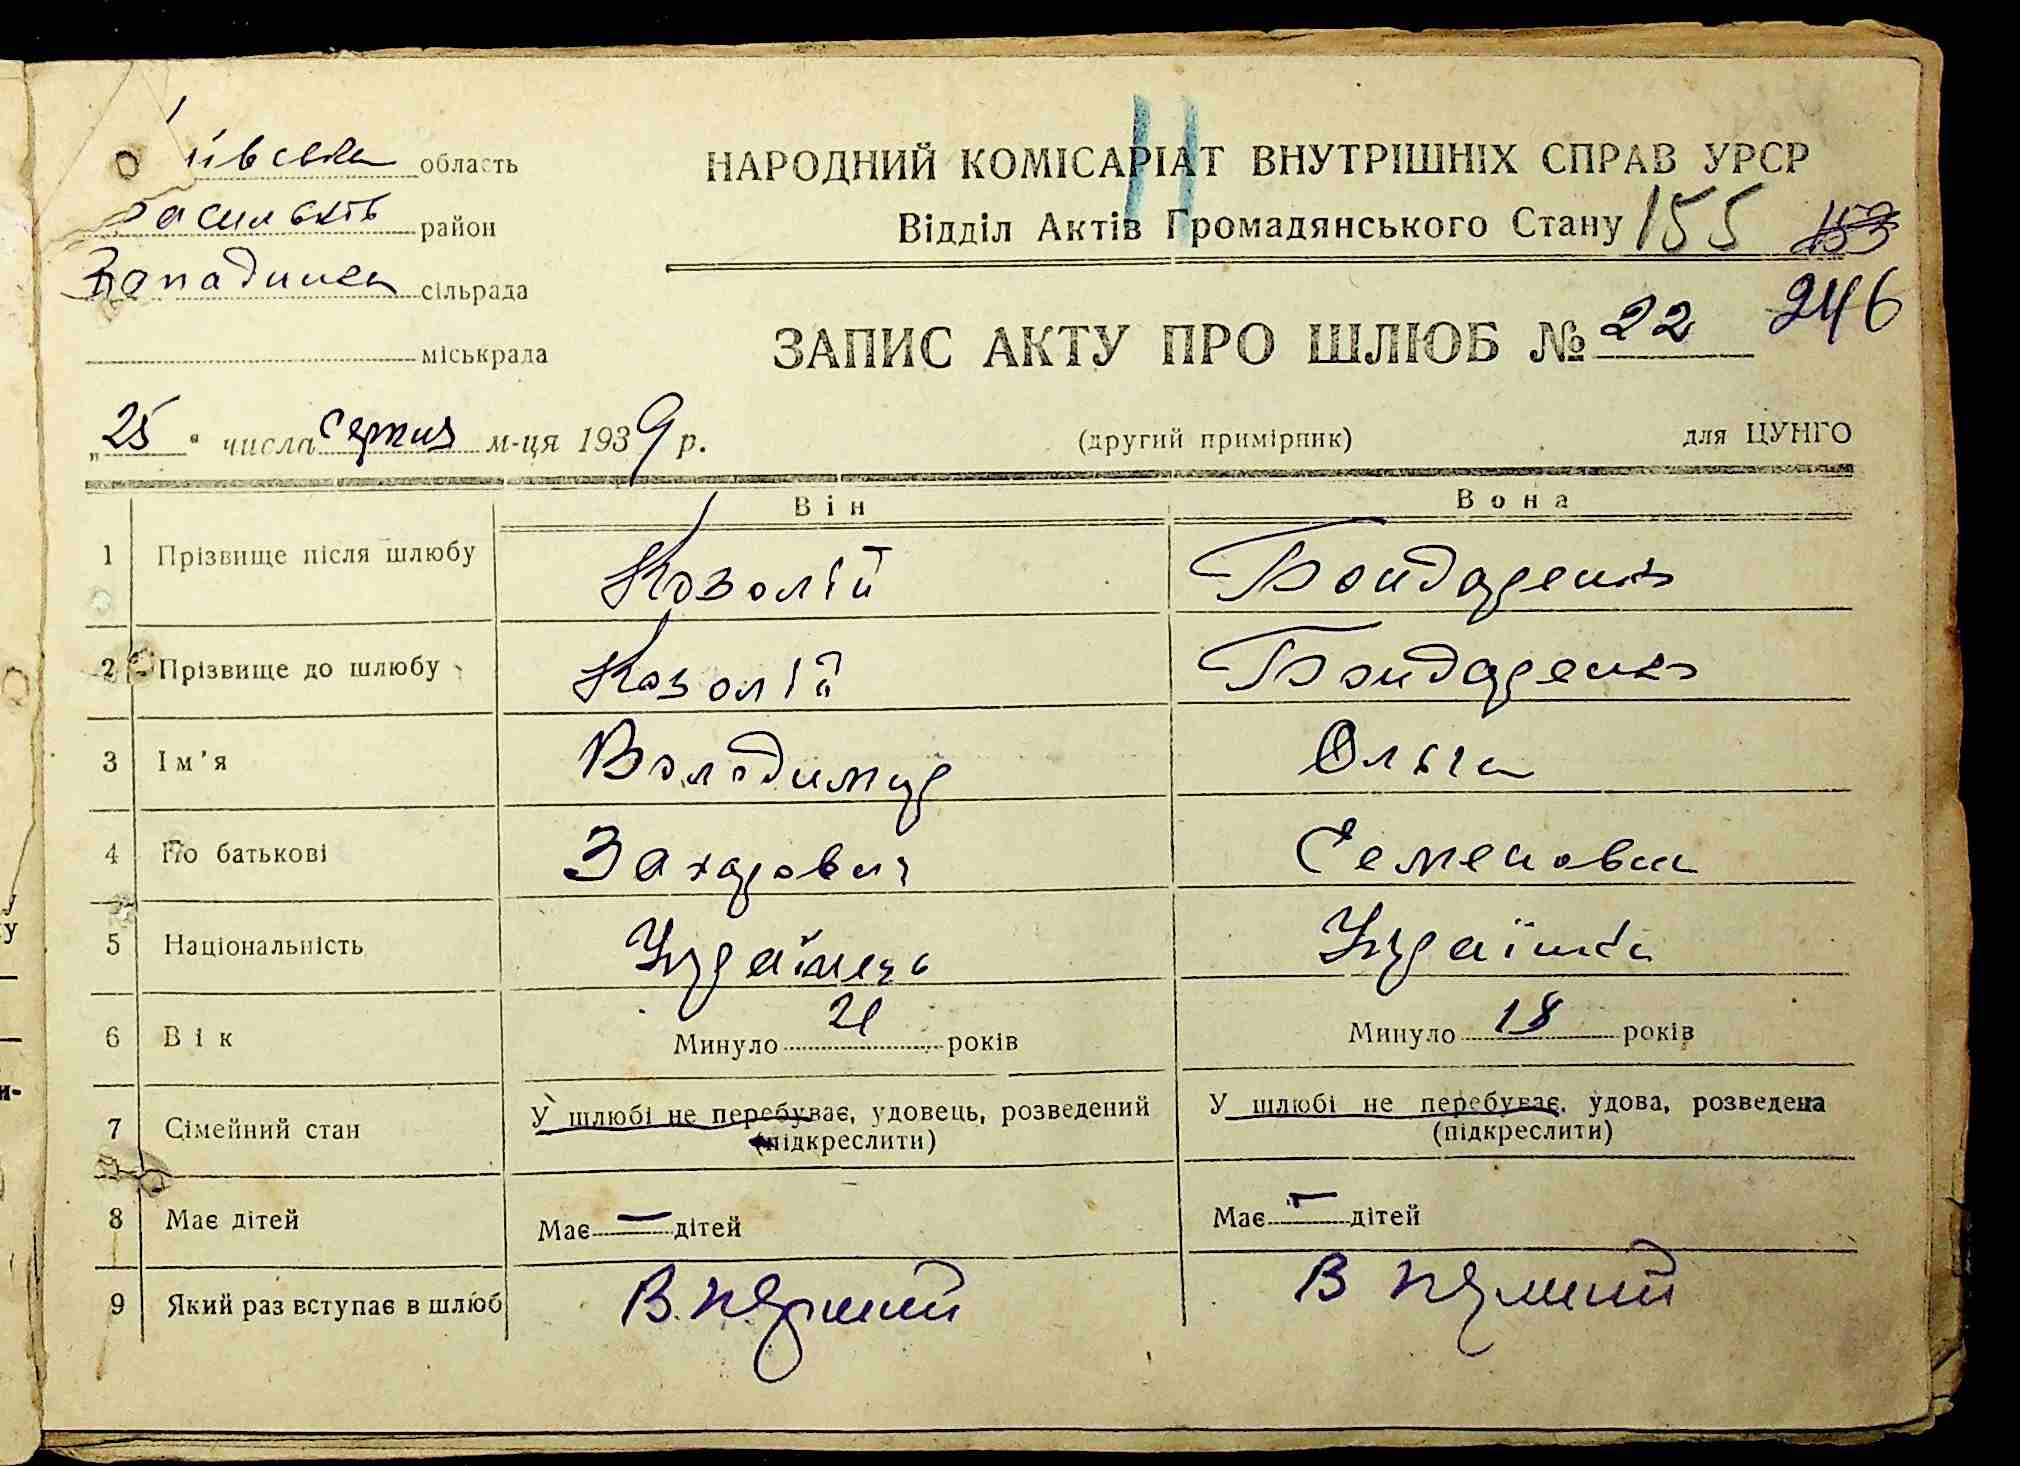 ївська область
Васильків район
Западинка сільрада
міськрада
НАРОДНИЙ КОМІСАРІАТ ВНУТРІШНІХ СПРАВ УРСР
Відділ Актів Громадянського Стану 155 153
ЗАПИС АКТУ ПРО ШЛЮБ № 22 246
„25" числа серпня м-ця 1939 р.
(другий примірник) для ЦУНГО
Він Вона
1 Прізвище після шлюбу Козолій Бондаренко
2 Прізвище до шлюбу Козолій Бондаренко
3 Ім'я Володимир Ольга
4 По батькові Захарович Семеновна
5 Національність Українець Українка
6 Вік Минуло 21 років Минуло 18 років
7 Сімейний стан У шлюбі не перебуває, удовець, розведений У шлюбі не перебуває, удова, розведена
(підкреслити) (підкреслити)
8 Має дітей Має — дітей Має — дітей
9 Який раз вступає в шлюб В перший В перший